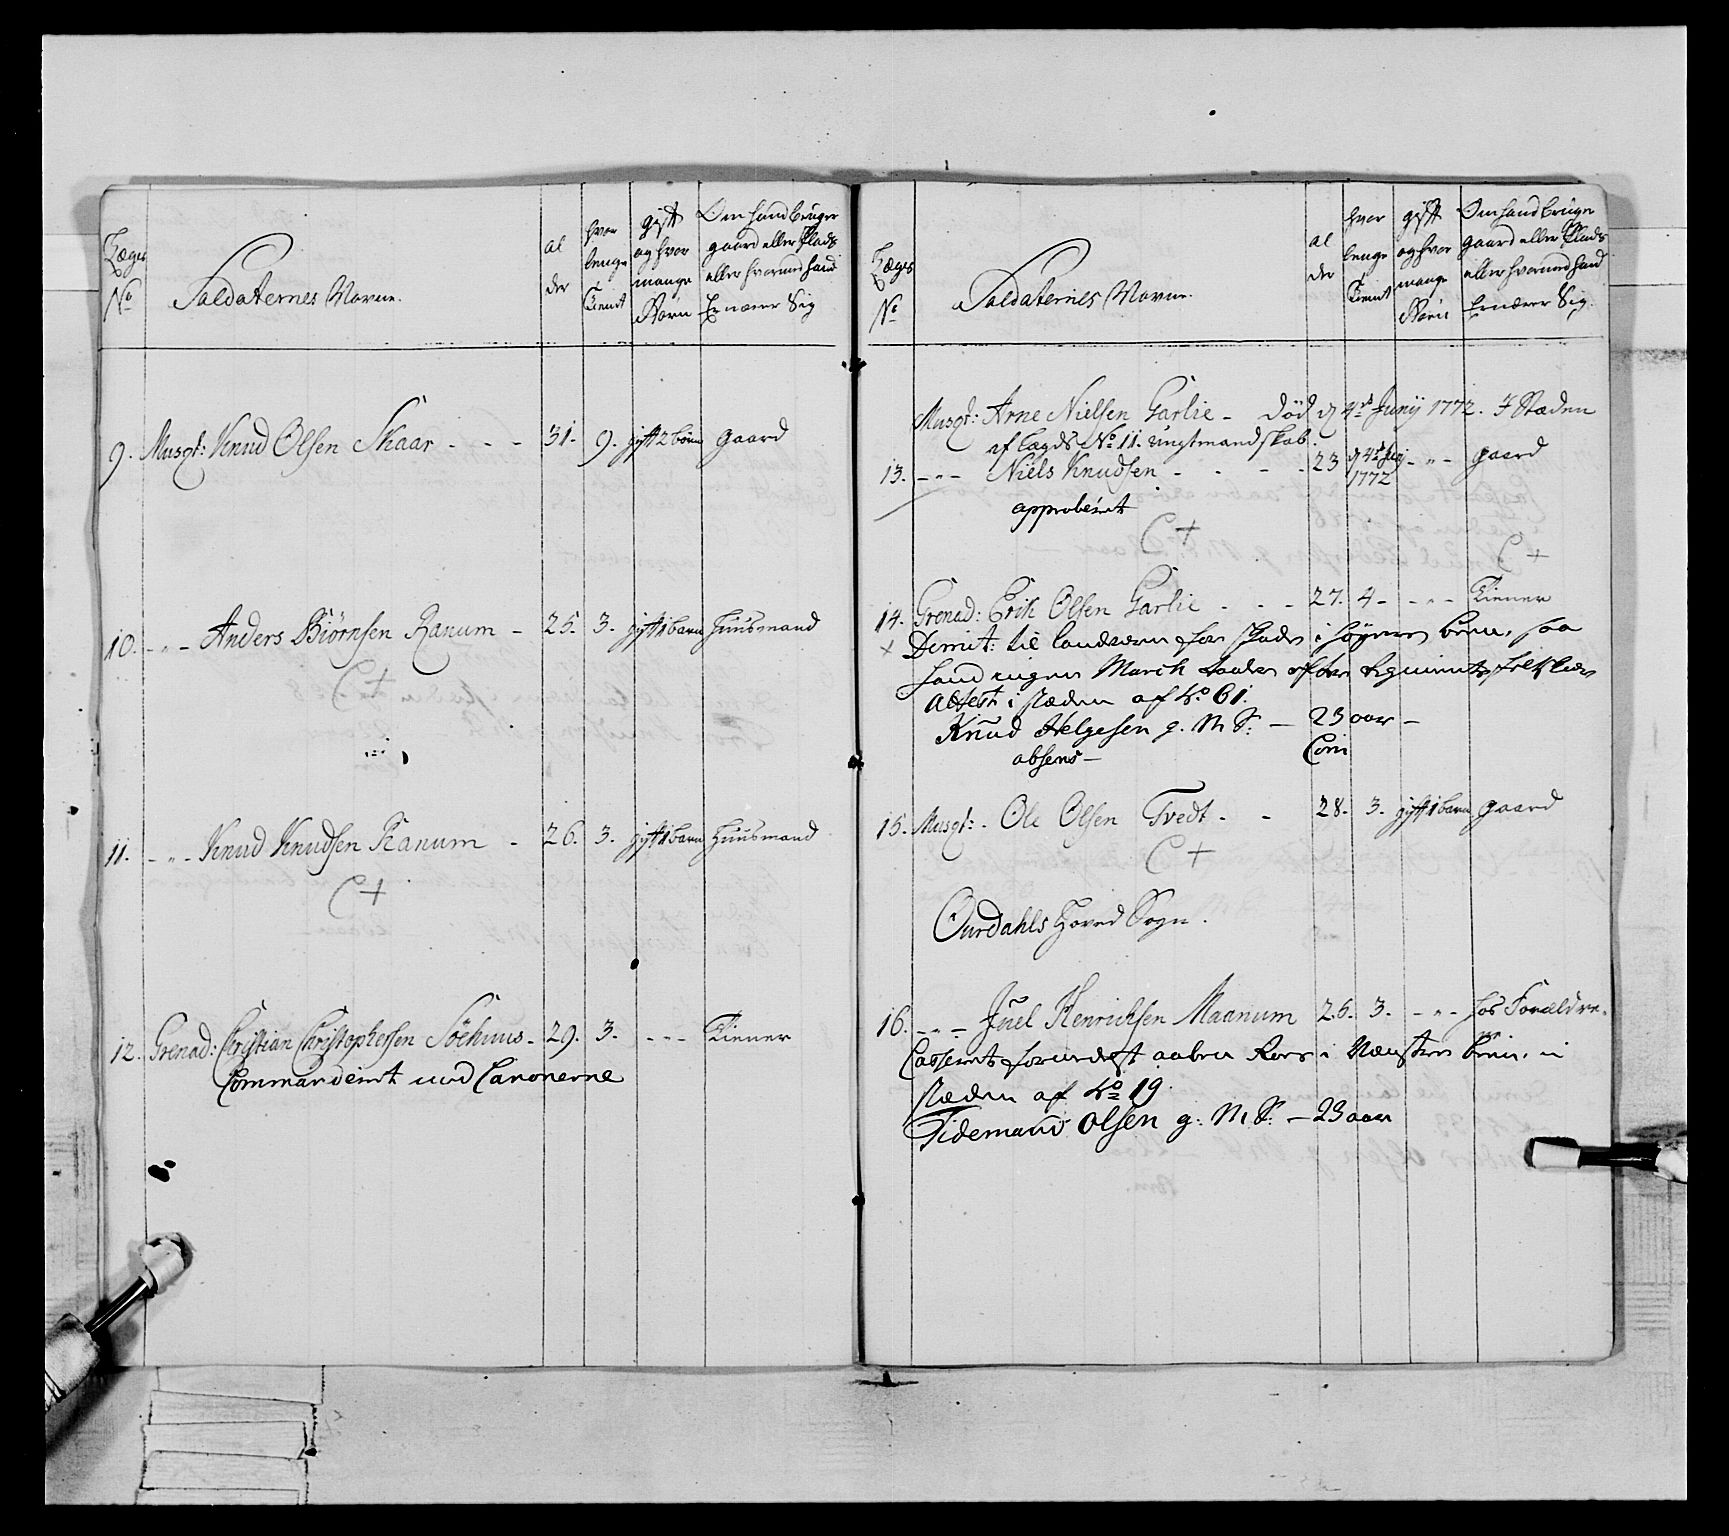 Læges No
Saldaternes Navne.
al der
hvor lenge tient
gift og hvor mange Børn
Om hand bruger gaard eller Plads eller hvormed hand Ernærer Sig
9. Musqt: Knud Olsen Skaar - - - 31. 9. gift 2 børn gaard
10. -"- Anders Biörnsen Ranum - 25. 3. gift 1 barn Huusmand
C +
11. -"- Knud Knudsen Ranum - 26. 3. gift 1 barn Huusmand
C +
12. Grenad: Christian Christophersen Söehuus - 29. 3. - - - Tiener
Commanderet ved Canonerne
Læges No
Saldaternes Navne.
al der
hvor lenge tient
gift og hvor mange Børn
Om hand bruger gaard eller Plads eller hvormed hand Ernærer Sig.
Musqt: Arne Nielsen Garlie - död d 4de Junij 1772. I Stæden
af Lægds No 11. ungtmandskab.
13. -"- Niels Knudsen - - - - 23 d 4de Junij 1772 -"- gaard
approberet
C +
C +
14. Grenad: Erik Olsen Garlie - - - 27. 4 - -"- Tiener
+ Dimit: til landværn for skade i høyere been, saa
hand ingen March taaler efter Regiments
attest i stæden af No 61.
Knud Helgesen g. M S: - 23 aar -
absens - Com
15. Musqt: Ole Olsen Tvedt - - 28. 3. gift 1 barn gaard
C +
Ourdahls Hoved Sogn.
16. -"- Juel Henrichsen Maanum 26. 3. -"- hos Forældre.
Casseret formedelst aaben i Venstre Been, i
stæden af No 19.
Tidemand Olsen g: M S: - 23 aar